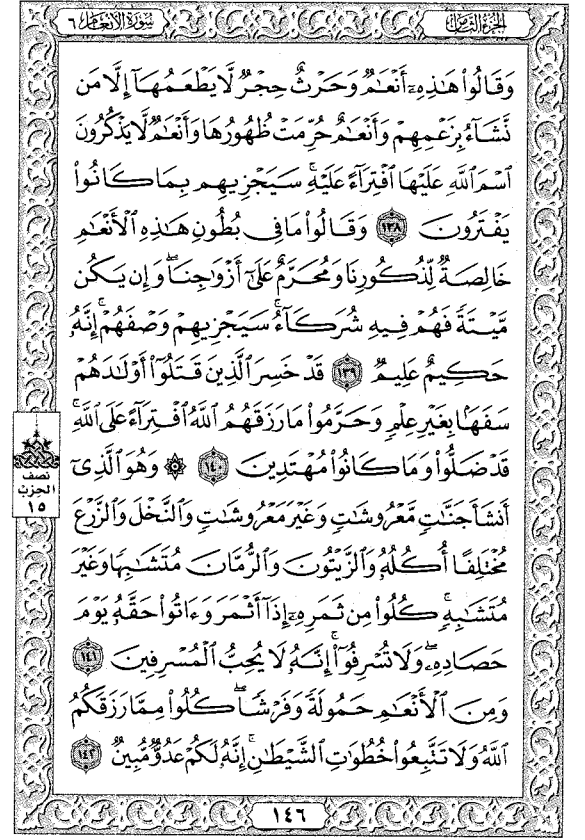 الجزء الثامن
سورة الأنعام ٦
وَقَالُوا۟ هَـٰذِهِۦٓ أَنْعَـٰمٌ وَحَرْثٌ حِجْرٌ لَّا يَطْعَمُهَآ إِلَّا مَن
نَّشَآءُ بِزَعْمِهِمْ وَأَنْعَـٰمٌ حُرِّمَتْ ظُهُورُهَا وَأَنْعَـٰمٌ لَّا يَذْكُرُونَ
ٱسْمَ ٱللَّهِ عَلَيْهَا ٱفْتِرَآءً عَلَيْهِ ۚ سَيَجْزِيهِم بِمَا كَانُوا۟
يَفْتَرُونَ ١٣٨ وَقَالُوا۟ مَا فِى بُطُونِ هَـٰذِهِ ٱلْأَنْعَـٰمِ
خَالِصَةٌ لِّذُكُورِنَا وَمُحَرَّمٌ عَلَىٰٓ أَزْوَٰجِنَا ۖ وَإِن يَكُن
مَّيْتَةً فَهُمْ فِيهِ شُرَكَآءُ ۚ سَيَجْزِيهِمْ وَصْفَهُمْ ۚ إِنَّهُۥ
حَكِيمٌ عَلِيمٌ ١٣٩ قَدْ خَسِرَ ٱلَّذِينَ قَتَلُوٓا۟ أَوْلَـٰدَهُمْ
سَفَهًۢا بِغَيْرِ عِلْمٍ وَحَرَّمُوا۟ مَا رَزَقَهُمُ ٱللَّهُ ٱفْتِرَآءً عَلَى ٱللَّهِ ۚ
قَدْ ضَلُّوا۟ وَمَا كَانُوا۟ مُهْتَدِينَ ١٤٠ ۞ وَهُوَ ٱلَّذِىٓ
نصف
الحزب
١٥
أَنشَأَ جَنَّـٰتٍ مَّعْرُوشَـٰتٍ وَغَيْرَ مَعْرُوشَـٰتٍ وَٱلنَّخْلَ وَٱلزَّرْعَ
مُخْتَلِفًا أُكُلُهُۥ وَٱلزَّيْتُونَ وَٱلرُّمَّانَ مُتَشَـٰبِهًا وَغَيْرَ
مُتَشَـٰبِهٍ ۚ كُلُوا۟ مِن ثَمَرِهِۦٓ إِذَآ أَثْمَرَ وَءَاتُوا۟ حَقَّهُۥ يَوْمَ
حَصَادِهِۦ ۖ وَلَا تُسْرِفُوٓا۟ ۚ إِنَّهُۥ لَا يُحِبُّ ٱلْمُسْرِفِينَ ١٤١
وَمِنَ ٱلْأَنْعَـٰمِ حَمُولَةً وَفَرْشًا ۚ كُلُوا۟ مِمَّا رَزَقَكُمُ
ٱللَّهُ وَلَا تَتَّبِعُوا۟ خُطُوَٰتِ ٱلشَّيْطَـٰنِ ۚ إِنَّهُۥ لَكُمْ عَدُوٌّ مُّبِينٌ ١٤٢
١٤٦